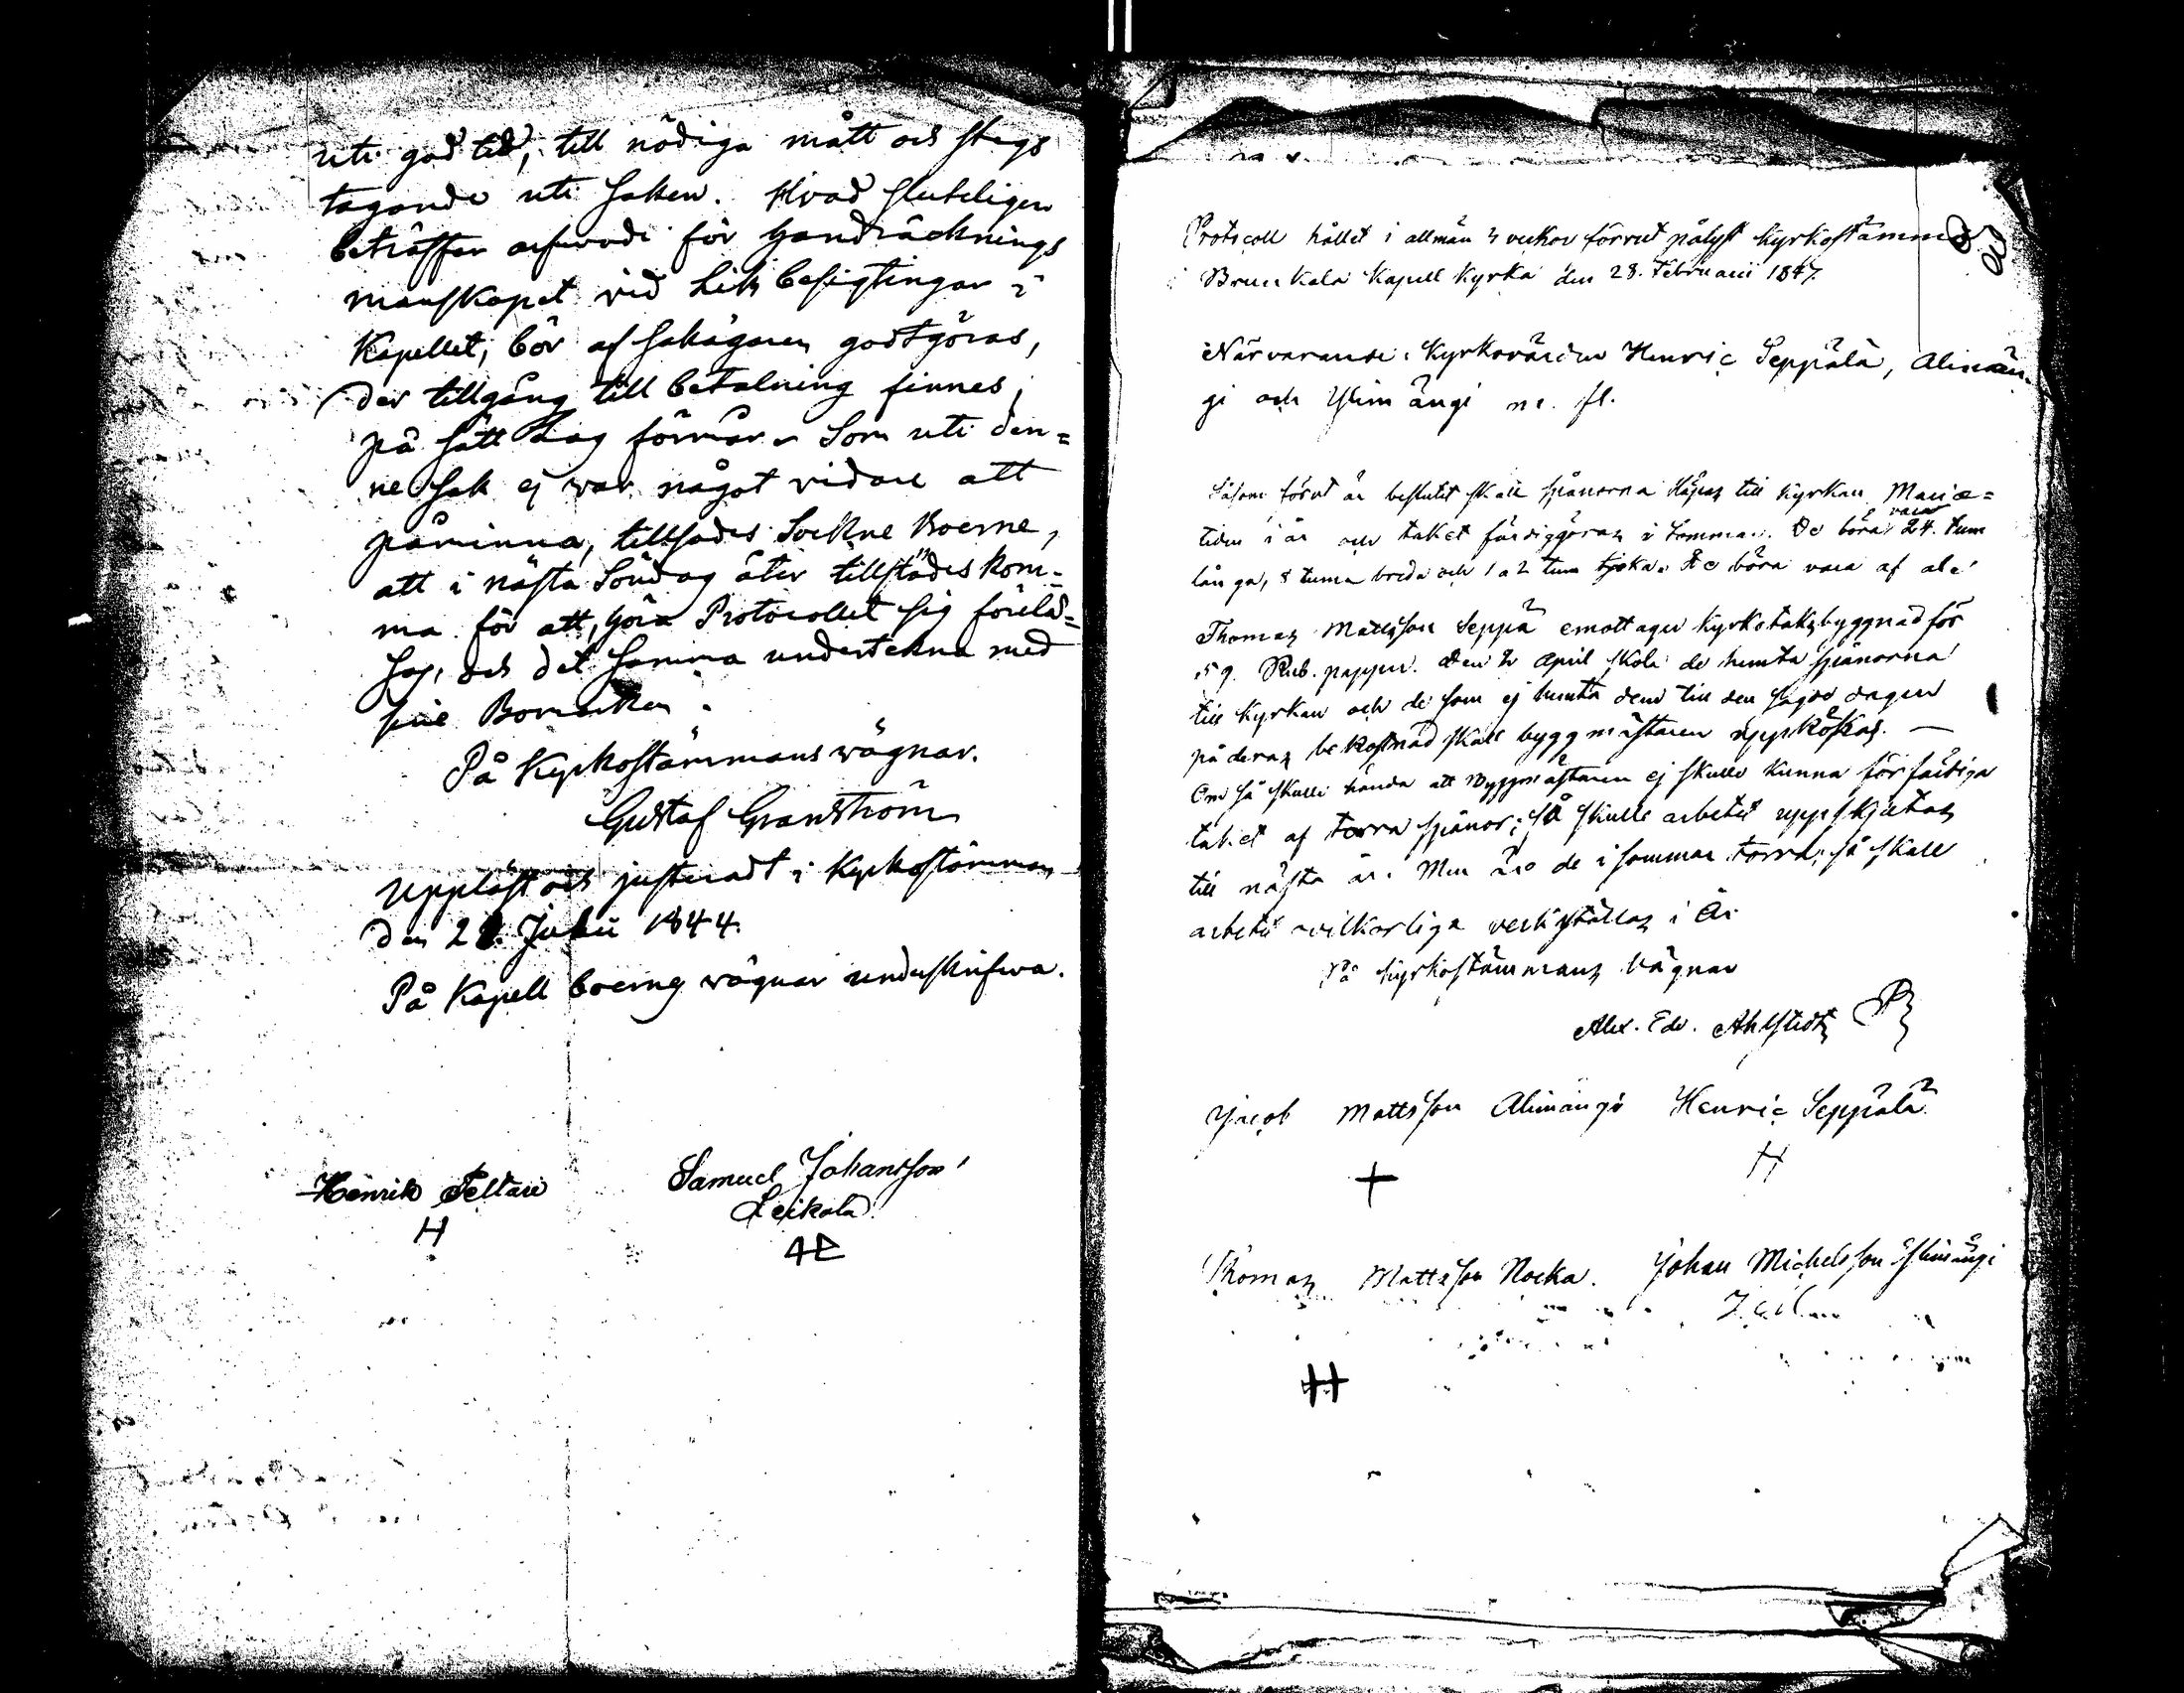 uti god tid, till nödiga mått och stegs
tagande uti saken. Hvad sluteligen
beträffar arfvode för handräcknings
manskapet vid Lik besigtingar i
Kapellet, bör af sakägaren godtgöras,
der tillgång till betalning finnes,
på sätt Lag förmår. Som uti den=
ne sak ej war något vidare att
påminna, tillsades Sockne Boerne,
att i nästa Söndag åter tillstädes kom=
ma för att, höra Protocollet sig föreläs=
sas, och det samma underteckna med
sine Bomärken.
På Kyrkostämmans wägnar.
Gustaf Granström
Uppläst och justeradt i Kyrkostämman
den 21. Julii 1844.
På Kapell boernes wägnar underskrifwa.
Henrik Peltari
H
Samuel Johansson
Leikola
Protocoll hållet i allmän 2 veckor förrut pålyst Kyrkostämma
i Brunkala Kapell Kyrka den 28. Februarii 1847.
Närvarande: Kyrkovärden Henric Seppälä, Alimän-
gi och Ylimängi m. fl.
Såsom förut är beslutet skall spånorna släpas till Kyrkan Mariæ=
tiden i år och taket färdiggöras i Sommar. De böra vara 24. tum
långa, 8 tum breda och 1 a 2 tum tjoka. De böra vara af ale.
Thomas Mattsson Seppä emottager Kyrkotaksbyggnad för
59. Rub. papper. Den 2 April skola de hemta spånorna
till Kyrkan och de som ej hemta dem till den sagde dagen
på deras bekostnad skall byggmästaren uppköpas. —
Om så skulle hända att Byggmästaren ej skulle kunna förfärdiga
taket af torra spånor; så skulle arbetet uppskjutas
till nästa år. Men äro de i sommar torra, så skall
arbetet ovilkorliga verkställas i År
På Kyrkostämmans Vägnar
Alex. Edv. Ahlstedt
Jacob Mattsson Alimängi Henric Seppälä
+ H
Thomas Mattsson Nocka. Johan Michelsson Ylimängi
H